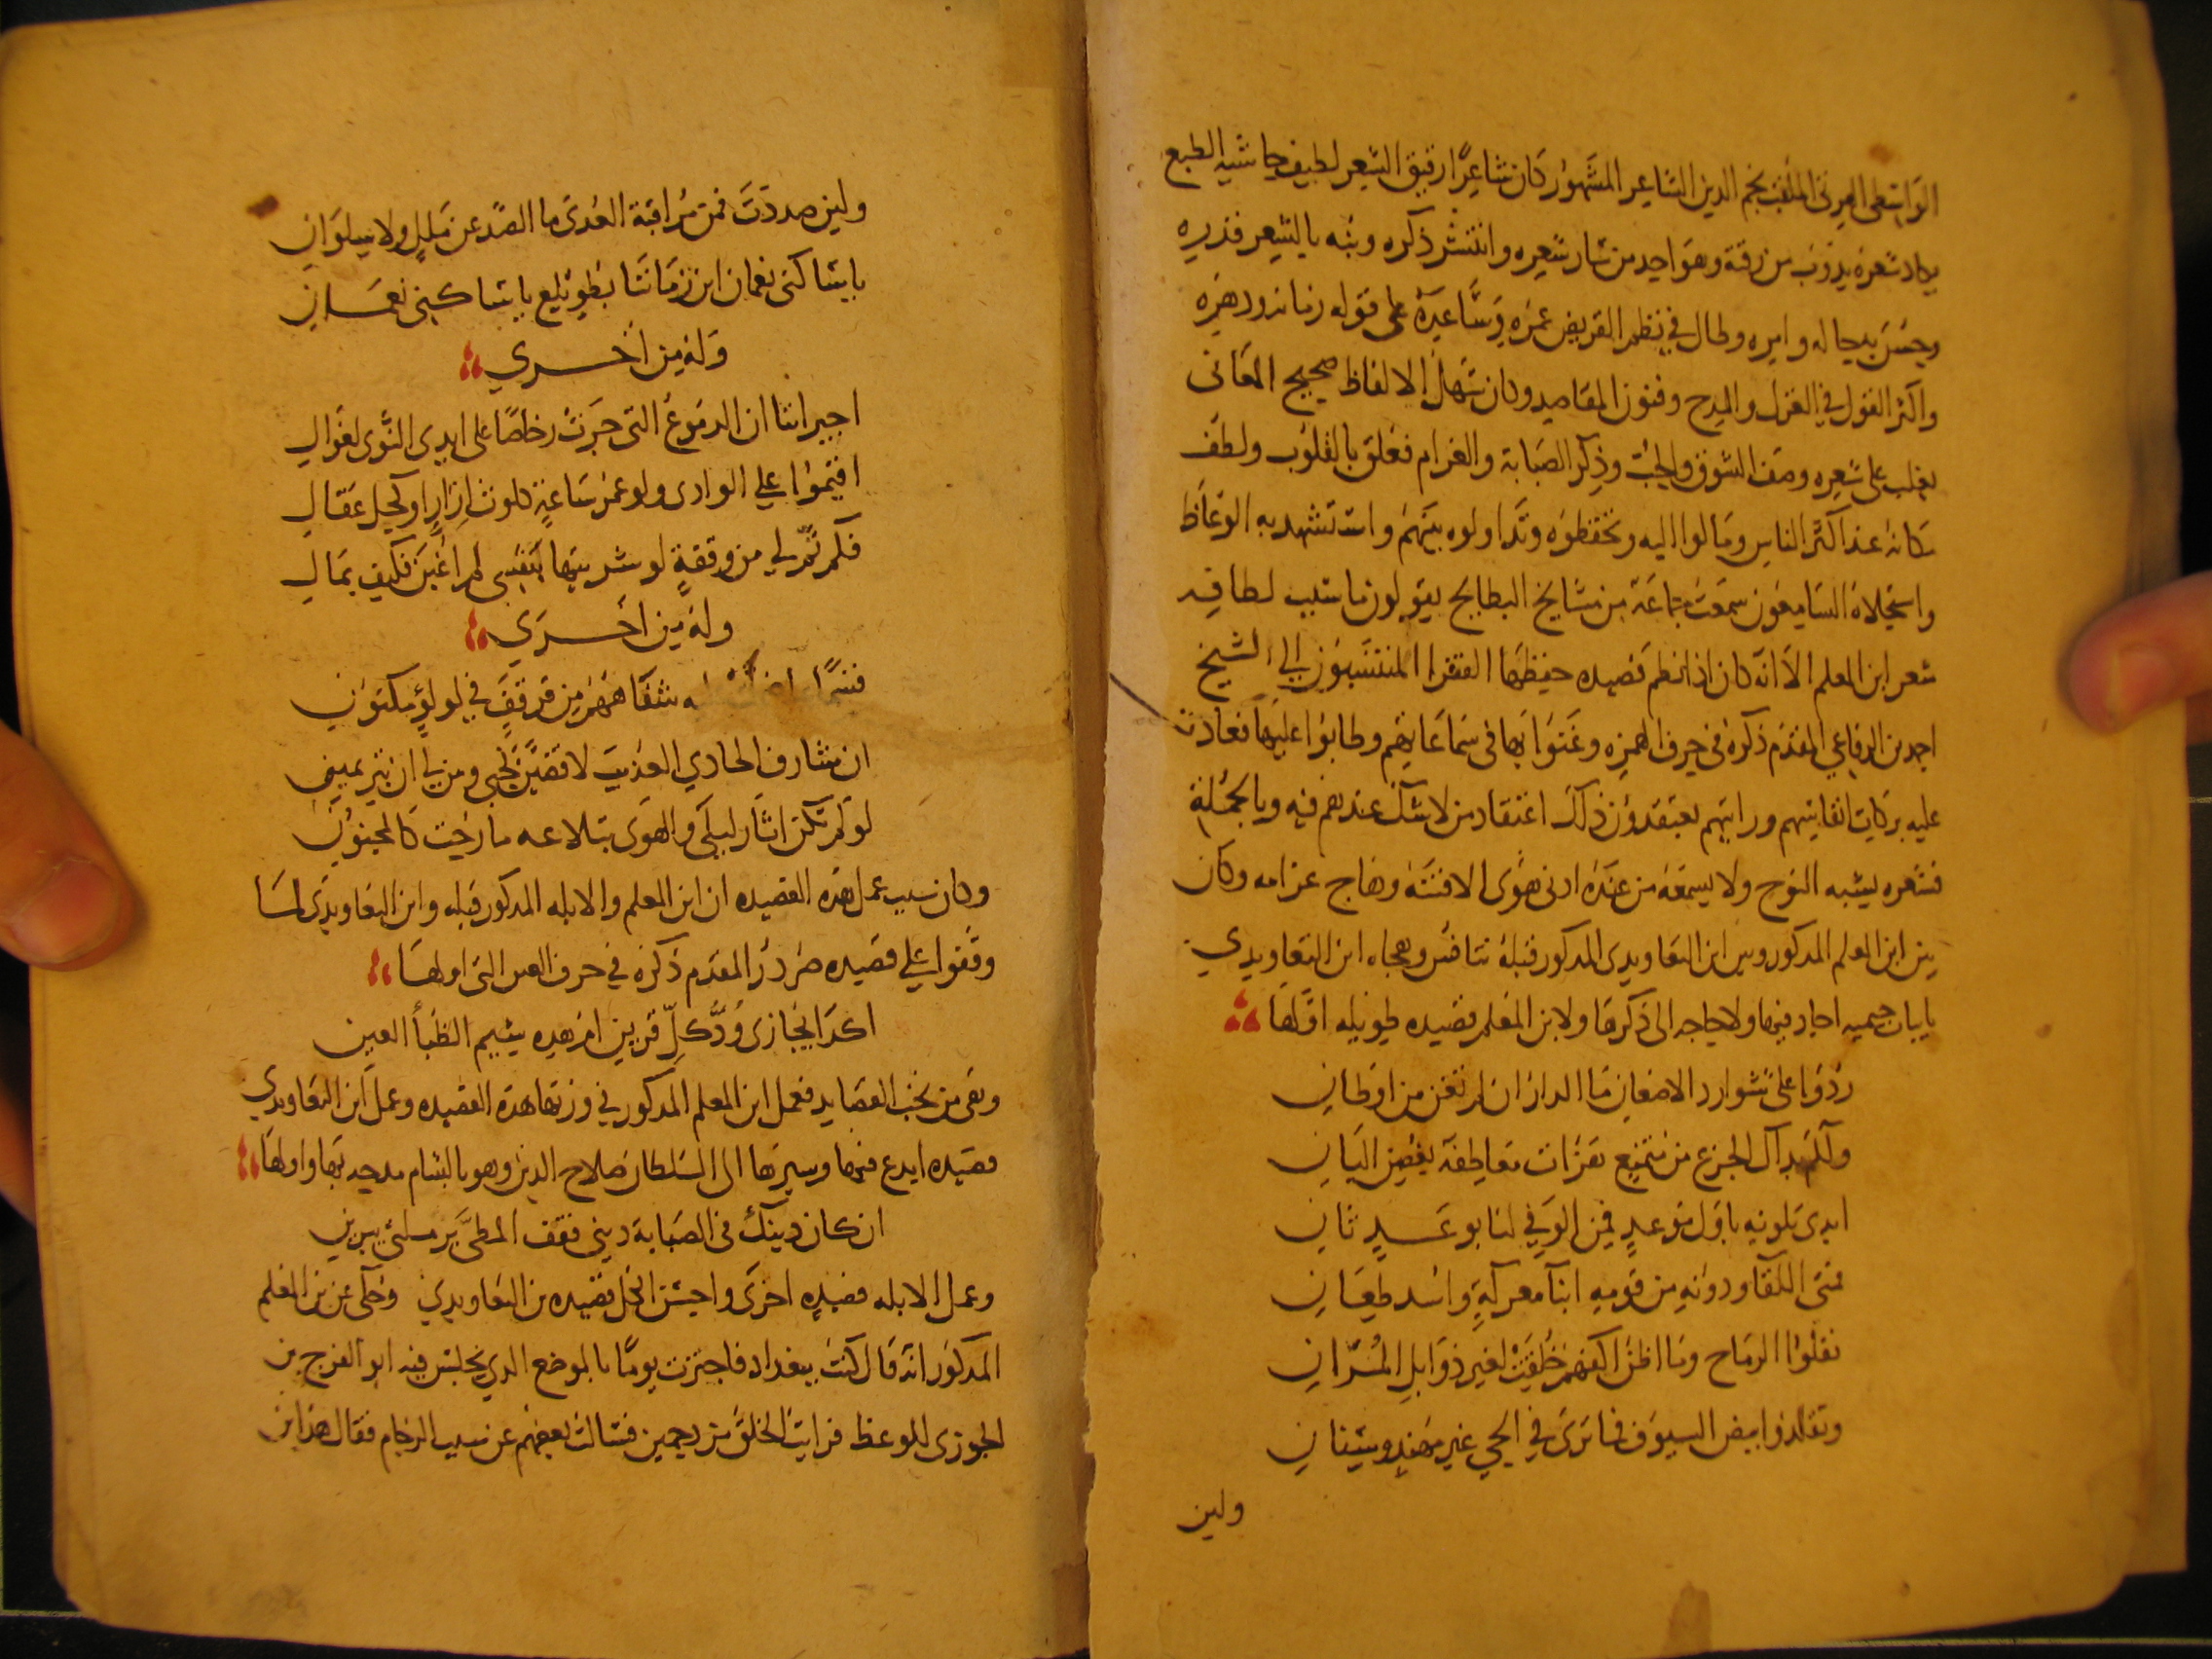 الواسطي الهرثي الملقب نجم الدين الشاعر المشهور كان شاعرًا رقيق الشعر لطيف حاشيه الطبع
يكاد شعره يذوب من رقته وهو احد من سار شعره وانتشر ذكره ونبه بالشعر قدره
وحسن به حاله وامره وطال في نظم القريض عمره وساعده على قوله زمانه ودهره
واكثر القول في الغزل والمدح وفنون المقاصد وكان سهل الالفاظ صحيح المعاني
يغلب على شعره وصف الشوق والحب وذكر الصبابة والغرام فعلق بالقلوب ولطف
مكانه عند اكثر الناس ومالوا اليه وتحفظوه وتداولوه بينهم واستشهد به الوعاظ
واستحلاه السامعون سمعت جماعة من مشايخ البطايح يقولون ما سبب لطافه
شعر ابن المعلم الا انه كان اذا نظم قصيده حفظها الفقرا المنتسبون الي الشيخ
احمد بن الرفاعي المقدم ذكره في حرف الهمزه وغنوا بها في سماعاتهم وطابوا عليها فعادت
عليه بركات انفاسهم ورايتهم يعتقدون ذلك اعتقاد من لا شك عندهم فيه وبالجملة
فشعره يشبه النوح ولا يسمعه من عنده ادنى هوى الا فتنه وهاج غرامه وكان
بين ابن المعلم المذكور وبين ابن التعاويذى المذكور قبله تنافس وهجاه ابن التعاويذي
بابيات جيميه اجاد فيها ولا حاجه الى ذكرها ولابن المعلم قصيده طويله اولها
ردوا على شوارد الاضعان ما الدار ان لم تغن من اوطان
ولكم بذاك الجزع من متمنع هزات معاطفه بغصن البان
ابدى تلونه باول موعد فمن الوفي لنا بوعد ثان
فمتى اللقا ودونه من قومه ابنا معركة واسد طعان
نقلوا الرماح وما اظن اكفهم خلقت لغير ذوابل المران
وتقلدوا بيض السيوف فما ترى في الحي غير مهند وسنان
ولين
ولين صددت فمن مراقبة العدى ما الصد عن ملل ولا سلوان
يا ساكنى نعمان اين زماننا بطويلع يا ساكني نعمان
وله من اخري
اجيراننا ان الدموع التي جرت رخاصًا على ايدى النوى لغوال
اقيموا علي الوادى ولو عمر ساعة كلوث ازار او كحل عقال
فكم ثم لي من وقفة لو شريتها بنفسي لم اغبن فكيف بمال
وله من اخرى
قسمًا شفاههم من قرقف في لولؤ مكنون
ان شارف الحادي العذيب لاقضين نحبي ومن لي ان تبر يميني
لو لم تكن اثار ليلى والهوى بتلاعه ما رحت كالمجنون
وكان سبب عمل هذه القصيده ان ابن المعلم والابله المذكور قبله وابن التعاويذى لما
وقفوا علي قصيده صردر المقدم ذكره في حرف العين التي اولها
اكذا يجازى ود كل قرين ام هذه شيم الظبا العين
وهى من نخب القصايد فعمل ابن المعلم المذكور في وزنها هذه القصيده وعمل ابن التعاويذي
قصيده ابدع فيها وسيرها الى السلطان صلاح الدين وهو بالشام مدحه بها واولها
ان كان دينك في الصبابة ديني فقف المطي برملتي يبرين
وعمل الابله قصيده اخرى واحسن الكل قصيده بن التعاويذي وحكى عن بن المعلم
المذكور انه قال كنت ببغداد فاجتزت يومًا بالموضع الذي يجلس فيه ابو الفرج بن
الجوزى للوعظ فرايت الخلق مزدحمين فسالت بعضهم عن سبب الزحام فقال هذا ابن